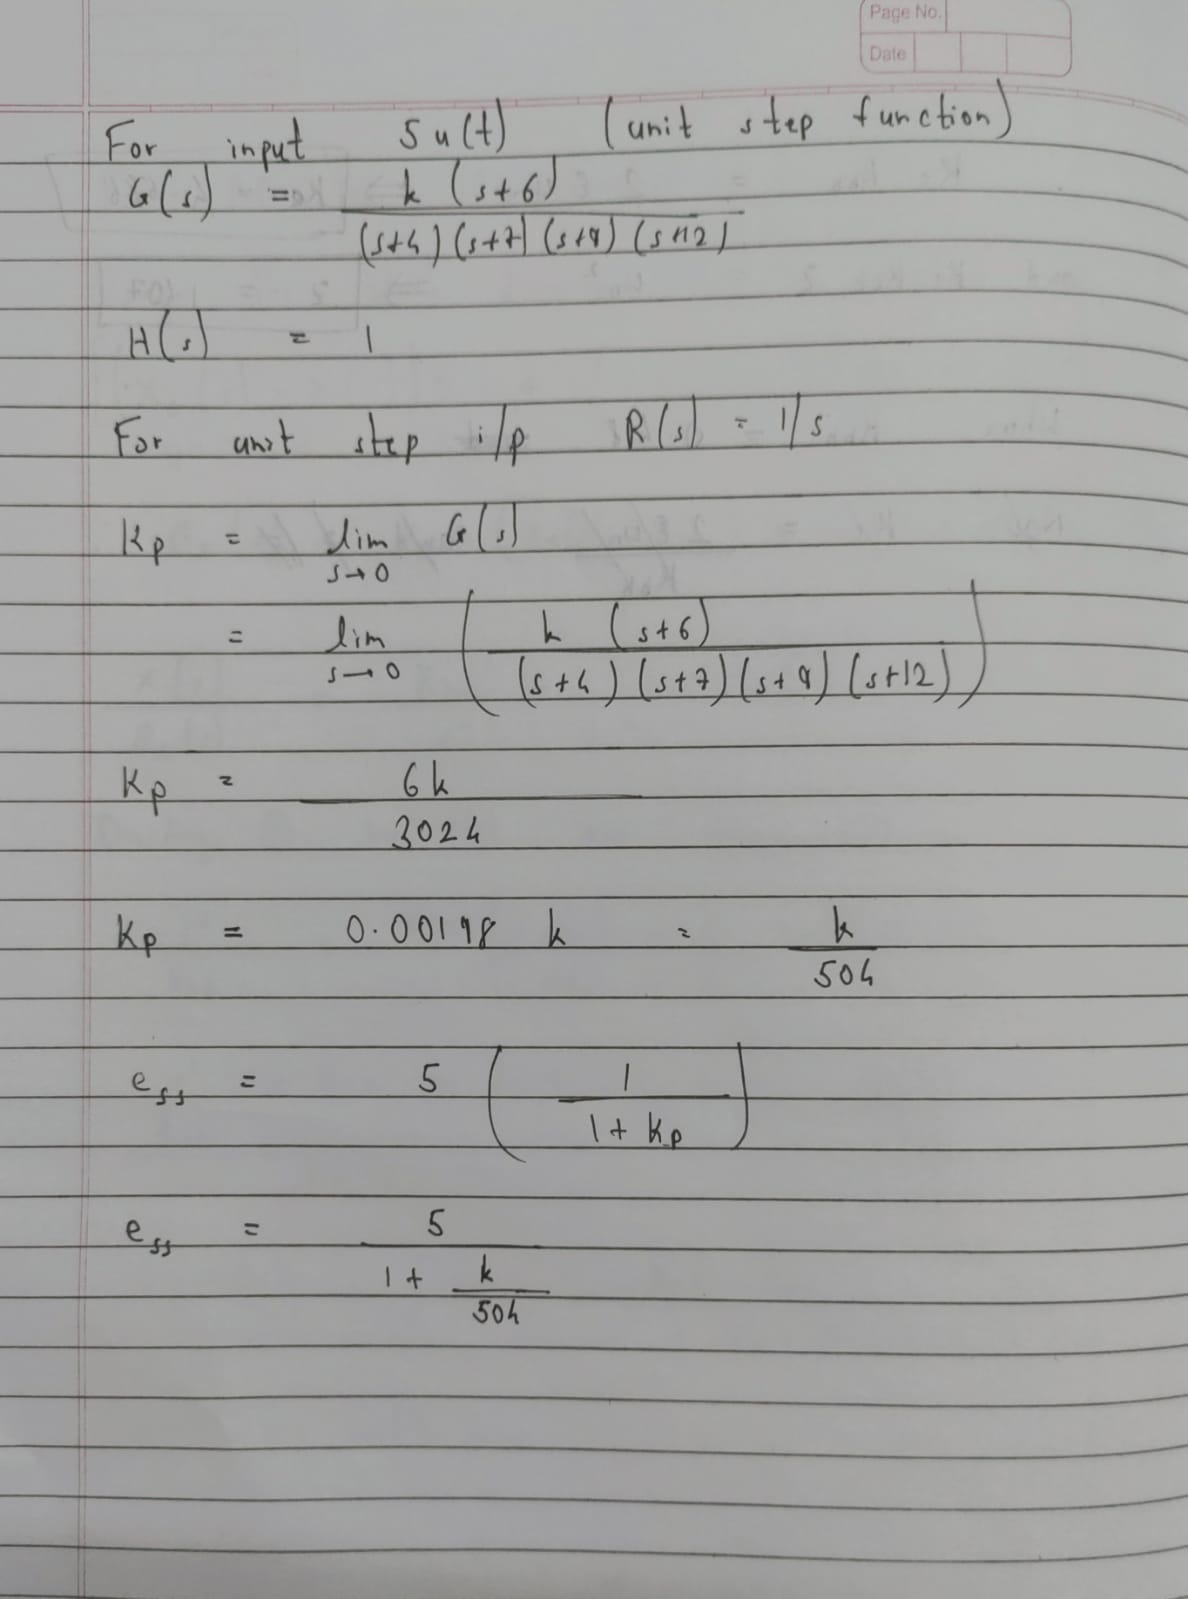 Page No.
Date
For input 5 u(t) (unit step function)
G(s) = k (s+6)
(s+4) (s+7) (s+9) (s+12)
H(s) = 1
For unit step i/p R(s) = 1/s
Kp = lim G(s)
s→0
= lim ( k (s+6)
s→0 (s+4) (s+7) (s+9) (s+12) )
Kp = 6k
3024
Kp = 0.00198 k = k
504
ess = 5 ( 1
1 + Kp )
ess = 5
1 + k
504